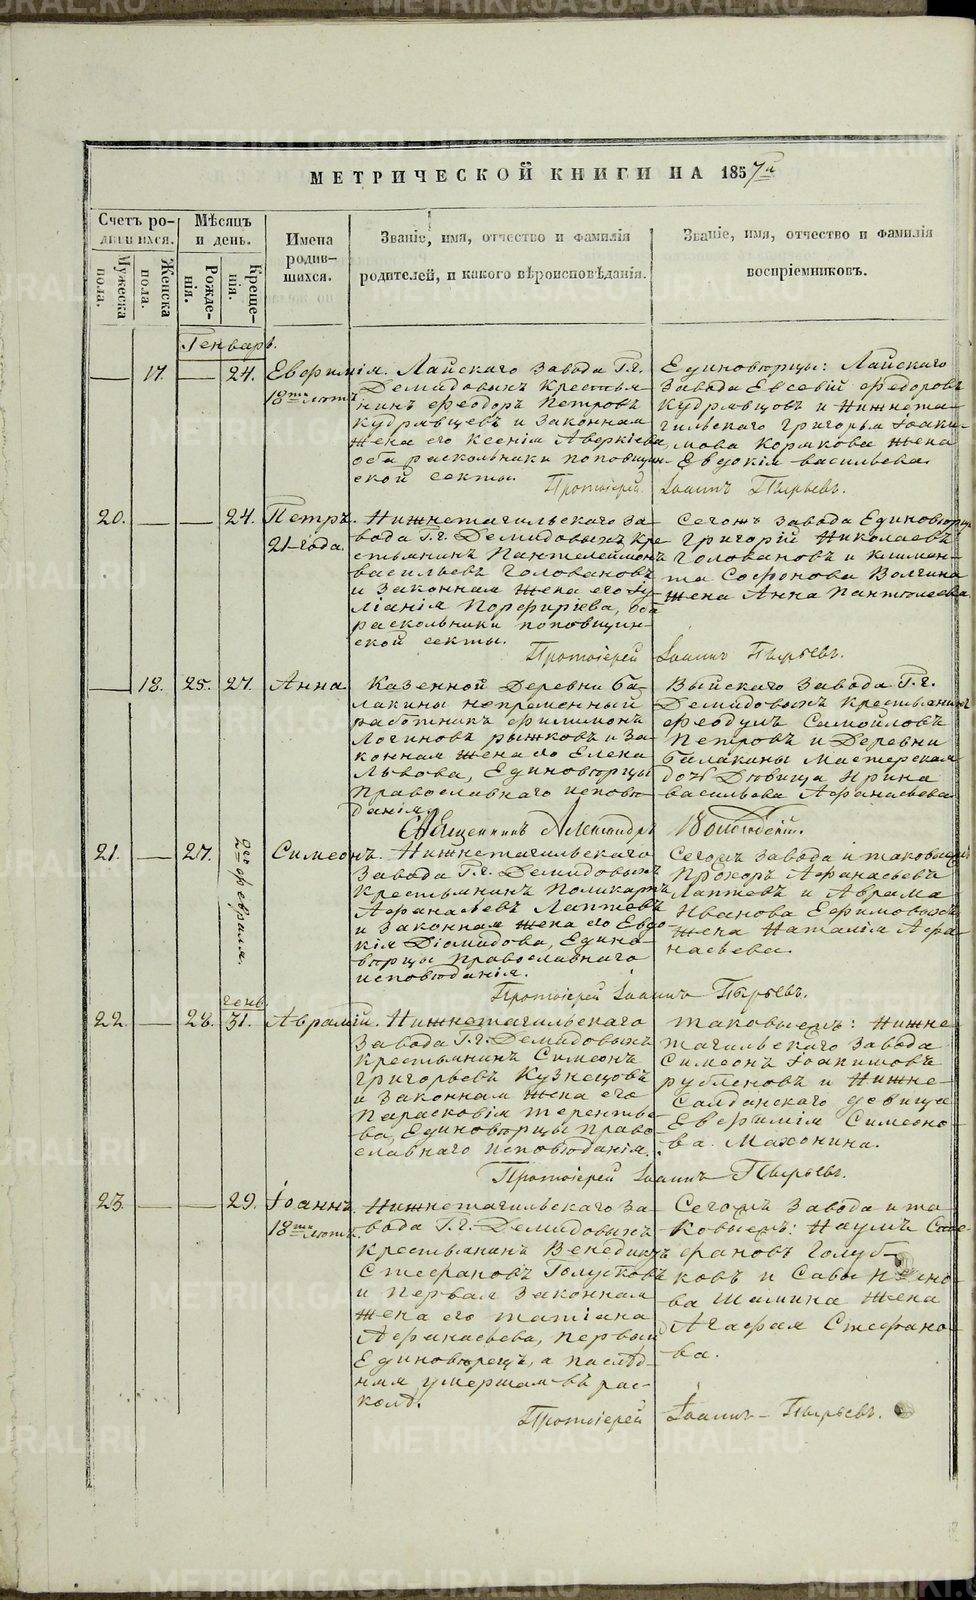 МЕТРИЧЕСКОЙ КНИГИ НА 1857й
Счетъ родившихся.
Мѣсяцъ и день.
Имена родившихся.
Званіе, имя, отчество и фамилія родителей, и какого вѣроисповѣданія.
Званіе, имя, отчество и фамилія воспріемниковъ.
Мужеска пола.
Женска пола.
Рожденія.
Крещенія.
Генварь.
17. 24. Евфимія. 18ти лѣтъ
Лайскаго завода Г.г.
Демидовыхъ крестья-
нинъ Феодоръ Петровъ
Кудрявцевъ и законная
жена его Ксенія Аверкіева,
оба раскольники поповщин-
ской секты.
Единовѣрцы: Лайскаго
завода Евсевій Феодоровъ
Кудрявцовъ и Нижнета-
гильскаго Григорья Іоаки-
мова Кормкова жена
Евдокія Васильева.
Протоіерей Іоаннъ Пырьевъ.
20. 24. Петръ. 21 года.
Нижнетагильскаго за-
вода Г.г. Демидовыхъ кре-
стьянинъ Пантелеймонъ
Васильевъ Головановъ
и законная жена его Іу-
ліанія Порфиріева, оба
раскольники поповщин-
ской секты.
Сегожъ завода Единовѣрцы
Григорій Николаевъ
Головановъ и Климен-
та Софонова Волгина
жена Анна Пантелеева.
Протоіерей Іоаннъ Пырьевъ.
18. 25. 27. Анна.
Казенной деревни Ба-
лакины непременный
работникъ Филимонъ
Логиновъ Рыжковъ и за-
конная жена его Елена
Львова, Единовѣрцы
православнаго исповѣ-
данія.
Выйскаго завода Г.г.
Демидовыхъ крестьянинъ
Феодулъ Самойловъ
Петровъ и деревни
Балакины мастерская
дочь девица Ирина
Васильева Афанасьева.
Священникъ Александръ
21. 27. 2го февраля. Симеонъ.
Нижнетагильскаго
завода Г.г. Демидовыхъ
крестьянинъ Поликарпъ
Афанасьевъ Лаптевъ
и законная жена его Евдо-
кія Діомидова, Едино-
вѣрцы православнаго
исповѣданія.
Сегожъ завода и таковыежъ
Прохоръ Афанасьевъ
Лаптевъ и Аврама
Иванова Ефимовыхъ
жена Наталія Афа-
насьева.
Протоіерей Іоаннъ Пырьевъ.
генв.
22. 28. 31. Аврамій.
Нижнетагильскаго
завода Г.г. Демидовыхъ
крестьянинъ Симеонъ
Григорьевъ Кузнецовъ
и законная жена его
Парасковія Терентье-
ва, Единовѣрцы право-
славнаго исповѣданія.
Таковыежъ: Нижне-
тагильскаго завода
Симеонъ Іоакимовъ
Рубленовъ и Нижне-
Салданскаго девица
Евфимія Симеоно-
ва Махонина.
Протоіерей Іоаннъ Пырьевъ.
23. 29. Іоаннъ. 18ти лѣтъ.
Нижнетагильскаго за-
вода Г.г. Демидовыхъ
крестьянинъ Венедиктъ
Стефановъ Голусковъ
и первая законная
жена его Татіана
Афанасьева, первый
Единовѣрецъ, а послѣд-
няя умершая въ рас-
колѣ.
Сегожъ завода и та-
ковыежъ: Наумъ
Голуб-
ковъ и Савы
Шамина жена
Агафья Стефано-
ва.
Протоіерей Іоаннъ Пырьевъ.
METRIKI.GASO-URAL.RU